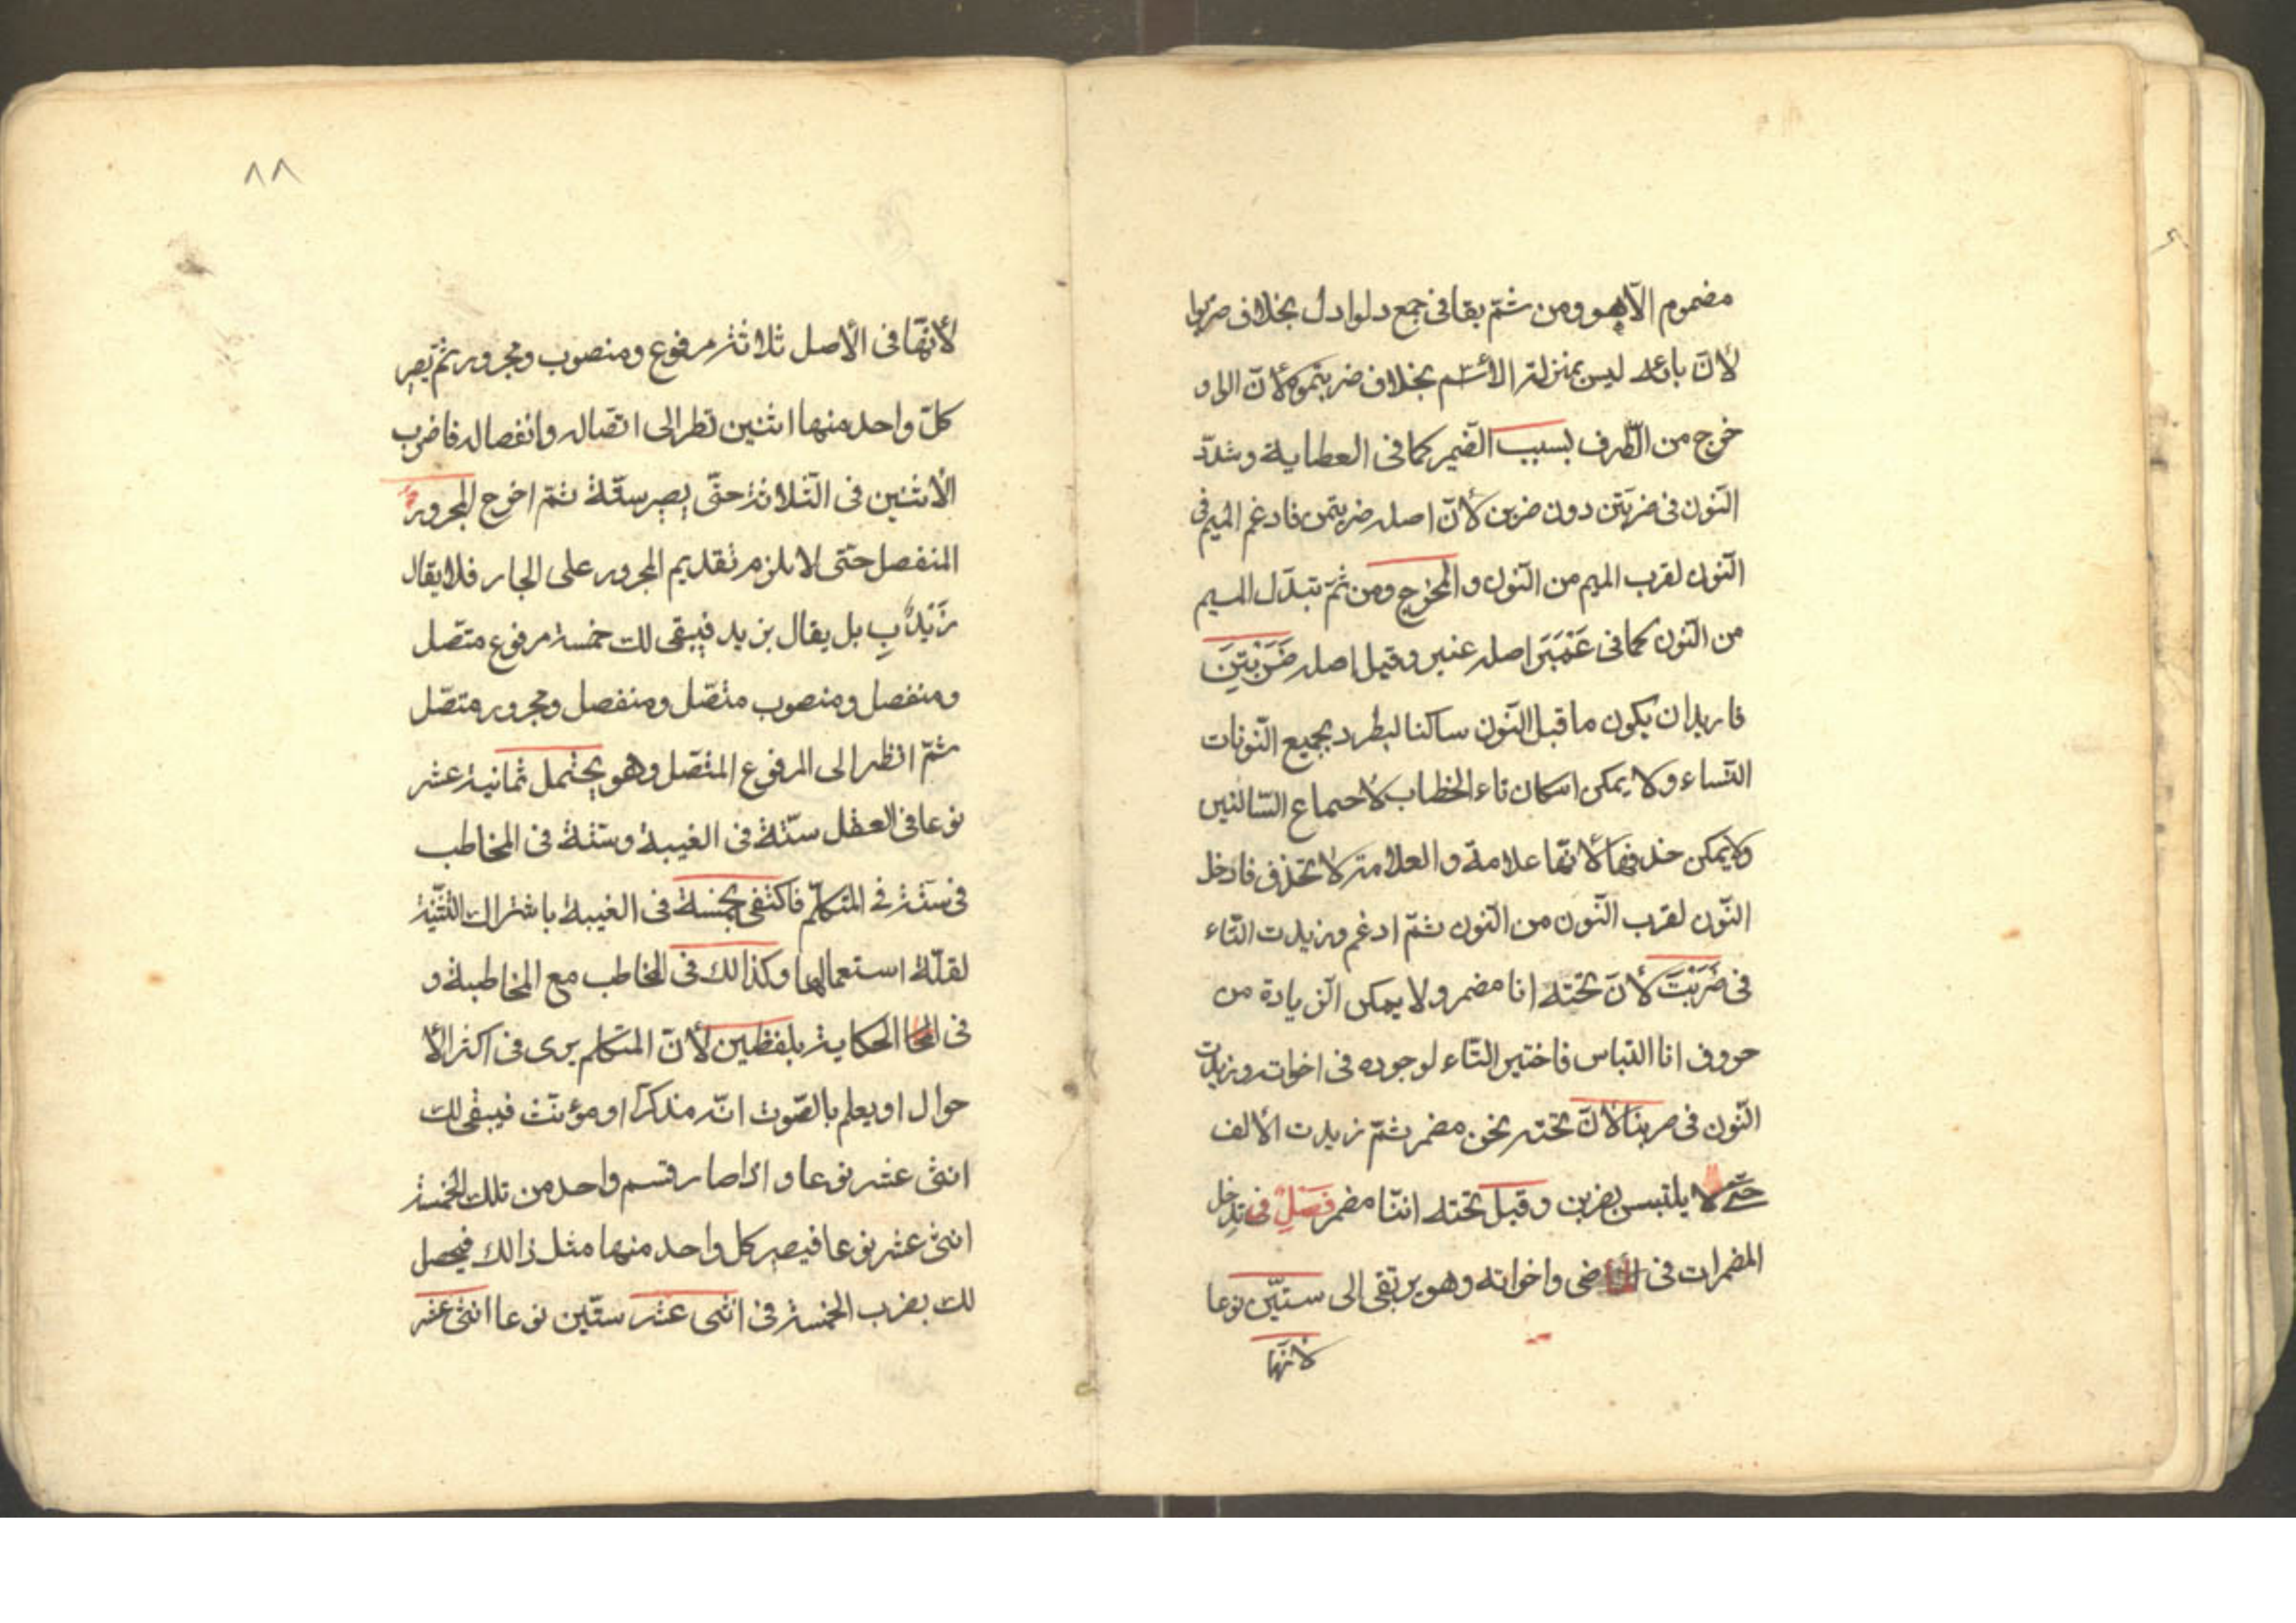 مضموم الّا هو ومن ثمّ يقا فى جمع دلو ادل بخلاف ضربوا
لأنّ بائه ليس بمنزلة الأسم بخلاف ضربتموه لأنّ الواو
خرج من الطّرف بسبب الضّمير كما فى العطاية وشدّد
النّون فى ضربتن دون ضربن لأنّ اصله ضربتمن فادغم الميم فى
النّون لقرب الميم من النّون و المخرج ومن ثمّ تبدّل الميم
من النّون كما فى عَمْبَر اصله عنبر وقيل اصله ضَرَبْتِنَ
فاريد ان يكون ما قبل النّون ساكنا ليطرد بجميع النّونات
النّساء ولا يمكن اسكان تاء الخطاب لأجماع السّاكنين
ولا يمكن حذفها لأنّها علامة والعلامة لا تحذف فادخل
النّون لقرب النّون من النّون ثمّ ادغم وزيدت التّاء
فى ضَرَبْتَ لأنّ تحته انا مضمر ولا يمكن الزيادة من
حروف انا التباس فاختير التّاء لوجوده فى اخواته وزيدت
النّون فى ضربنا لأنّ تحته نحن مضمر ثمّ زيدت الألف
حتّى لا يلتبس بضربن وقيل تحته انّنا مضمر فَصْلٌ فى تدخل
المضمرات فى الماضى واخواته وهو يرتقى الى ستّين نوعا
لأنّها
٨٨
لأنّها فى الأصل ثلاثة مرفوع ومنصوب ومجرور ثمّ يصير
كلّ واحد منها اثنين نظر الى اتّصاله وانفصاله فاضرب
الأثنين فى الثّلاثة حتّى يصير ستّة ثمّ اخرج المجرور
المنفصل حتّى لا يلزم تقديم المجرور على الجار فلا يقال
زَيْدٌ بِ بل يقال بزيد فيبقى لك خمسة مرفوع متّصل
ومنفصل ومنصوب متّصل ومنفصل ومجرور متّصل
ثمّ انظر الى المرفوع المتّصل وهو يحتمل ثمانية عشر
نوعا فى العقل ستّة فى الغيبة وستّة فى المخاطب
فى ستّة فى المتكلّم فاكتفى بخمسة فى الغيبة باشتراك التّثنية
لقلّة استعمالها وكذالك فى المخاطب مع المخاطبة و
فى الحكاية بلفظين لأنّ المتكلم يرى فى اكثر الأ
حوال او يعلم بالصّوت انّه مذكرا او مؤنّث فيبقى لك
اثنى عشر نوعا و اذا صار قسم واحد من تلك الخمسة
اثنى عشر نوعا فيصير كل واحد منها مثل ذالك فيحصل
لك بضرب الخمسة فى اثنى عشر ستّين نوعا اثنى عشر